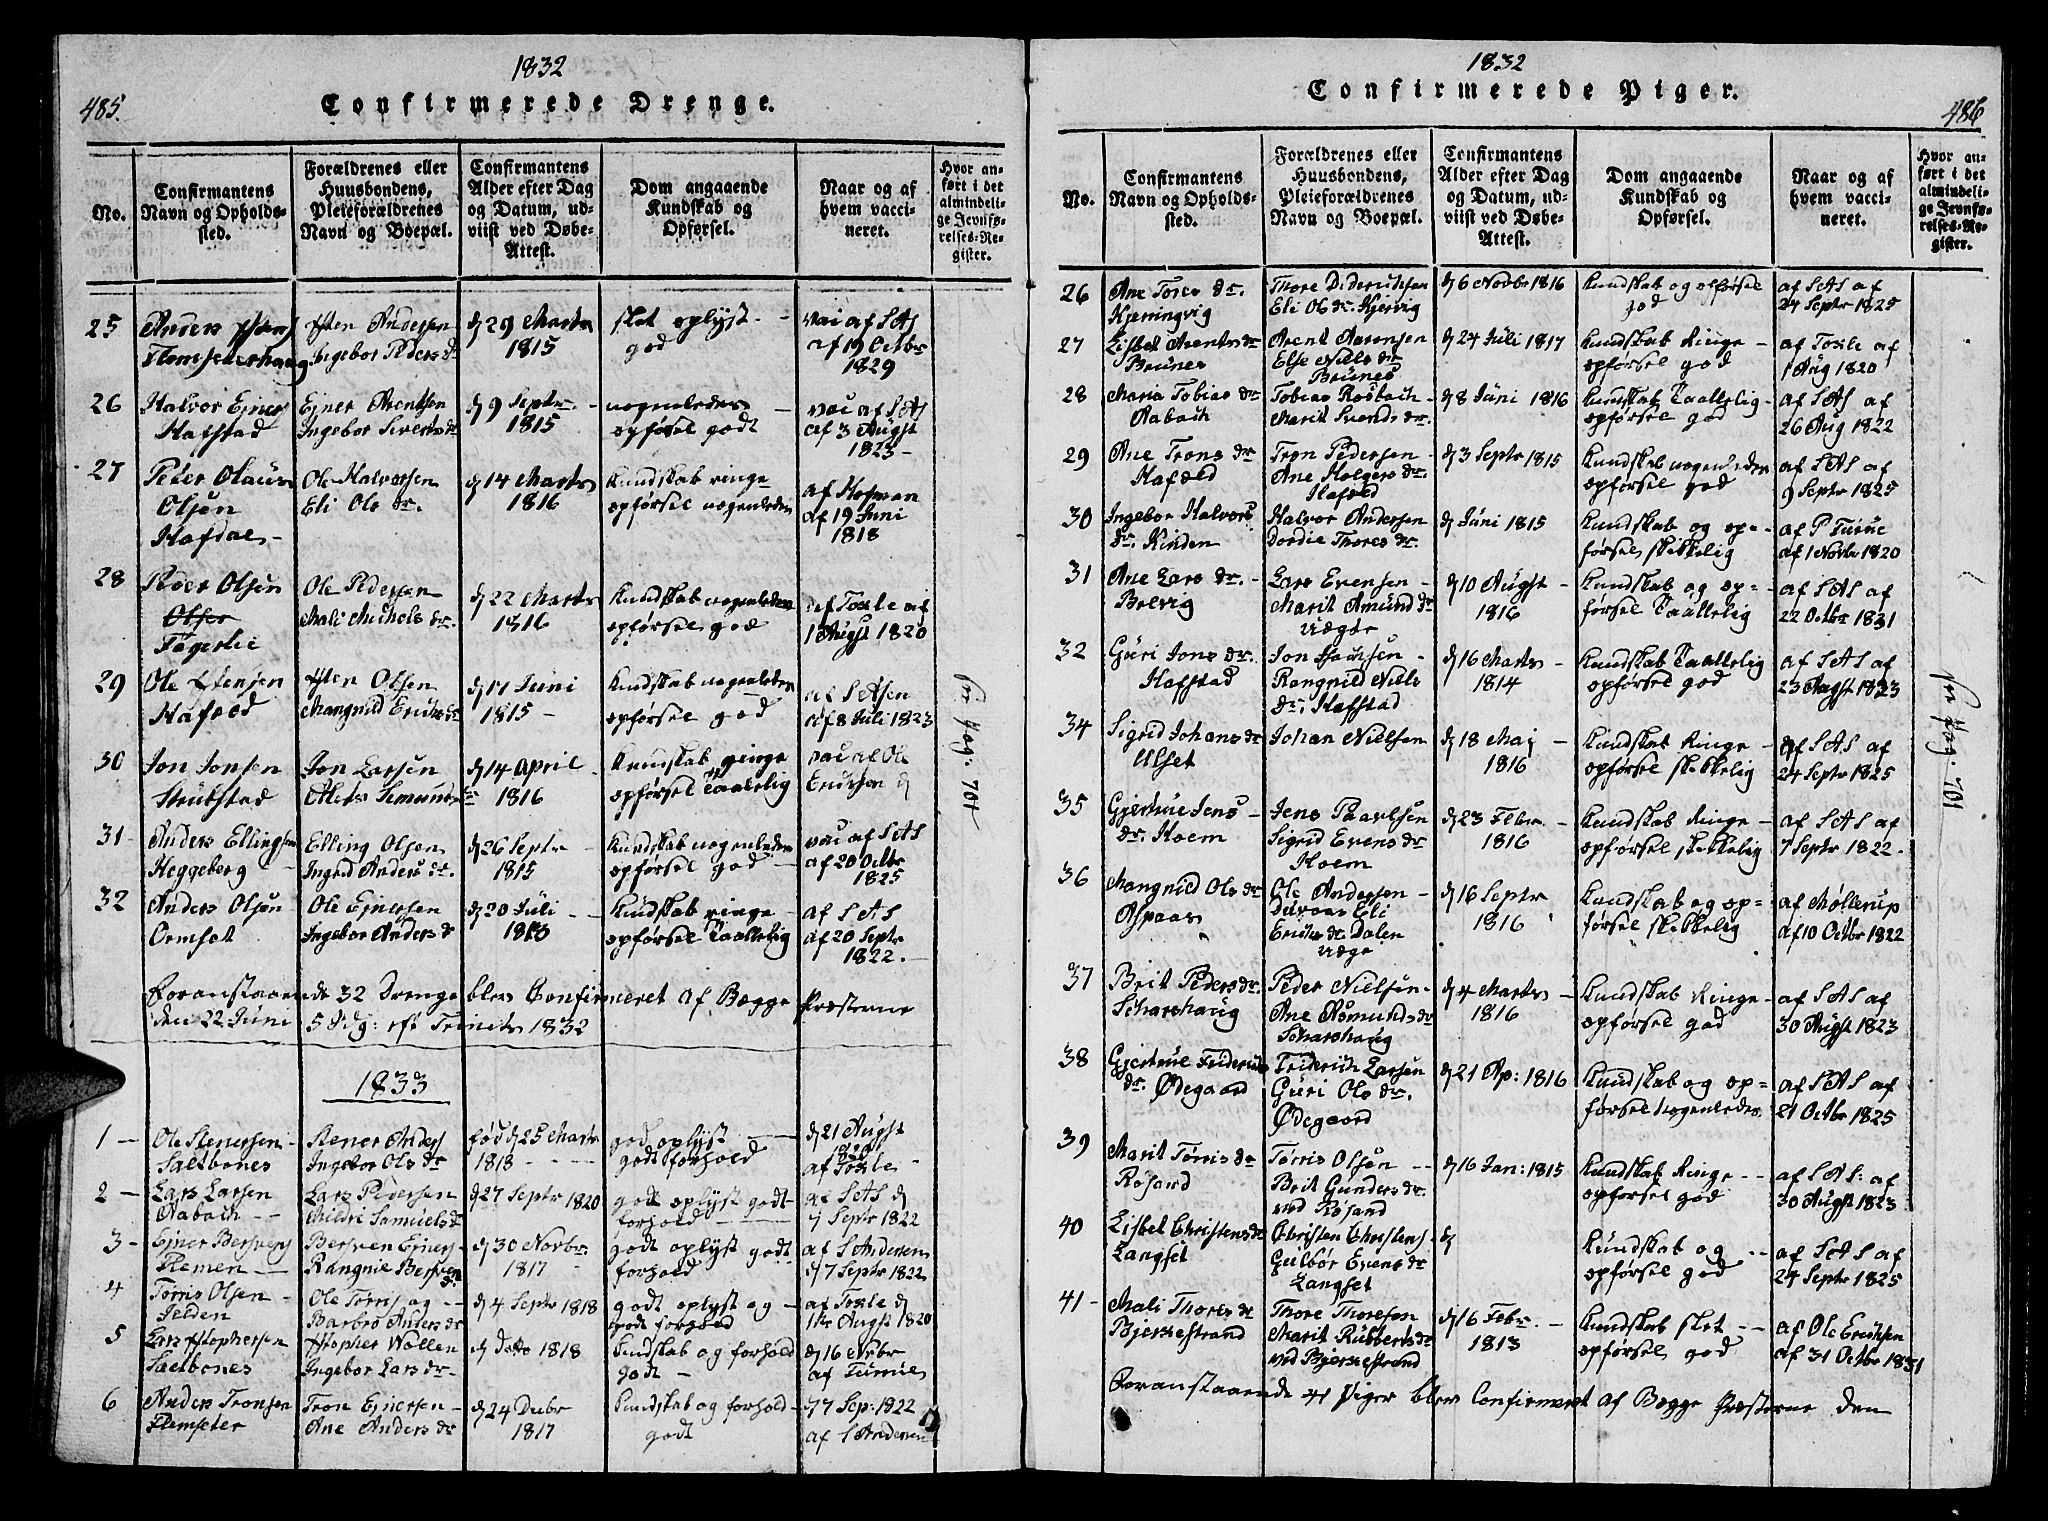 1832
485.
Confirmerede Drenge.
No.
Confirmantens
Navn og Opholds-
sted.
Forældrenes eller
Huusbondens,
Pleieforældrenes
Navn og Boepæl.
Confirmantens
Alder efter Dag
og Datum, ud-
viist ved Døbe-
Attest.
Dom angaaende
Kundskab og
Opførsel.
Naar og af
hvem vacci-
neret.
Hvor an-
ført i det
almindeli-
ge Jevnfø-
relses-Re-
gister.
25
Anders
Andersen
Ingebor Peders dr
d 29 Marts
1815
slet oplyst
god
vac af SAS
af 19 Octbr
1829
26
Halvor Ejners
Hafstad
Ejner Arentsen
Ingebor Sivers dr
d 9 Septr
1815
nogenledes
opførsel godt
vac af SAS
af 3 Augst
1823
27
Peter Olaus
Olsen
Hafdal
Ole Halvorsen
Eli Ols dr.
d 14 Marts
1816
Kundskab ringe
opførsel nogenledes
af Hofman
af 19 Juni
1818
28
Peder Olsen
Olsen
Fagerlie
Ole Pedersen
Mali Michels dr.
d 22 Marts
1816
Kundskab nogenledes
opførsel god
af Toxle af
1 Augst 1820
29
Ole Istensen
Hafæld
Isten Olsen
Mangnild Erichs dr
d 17 Juni
1815
Kundskab nogenledes
opførsel god
af S ASen
af 8 Juli 1823
30
Jon Jonsen
Strubstad
Jon Larsen
d 14 April
1816
Kundskab ringe
opførsel Taallelig
vac af Ole
Erichsen d
31
Anders Ellingsen
Heggeberg
Elling Olsen
Ingrid Anders dr.
d 26 Septr
1815
Kundskab nogenledes
opførsel god
vac af SAS
af 20 Octbr
1825
32
Anders Olsen
Ormset
Ole Ejnersen
Ingebor Anders dr
d 20 Juli
Kundskab ringe
opførsel Taallelig
af SAS
af 20 Septr
1822.
Foranstaaende 32 Drenge blev Confirmeret af Begge Præsterne
den 22 Juni 5 Sdg: eft Trinits 1832
1833
1
Ole Stenersen
Saltbones
Stener Anders
Ingebor Ols dr
fød d 25 Marts
1818
god oplyst
godt forhold
d 21 Augst
1820
af Toxle
2
Lars Larsen
Aabach
Lars Pedersen
Mildri Samuels dr
d 27 Septr 1820
godt oplyst godt
forhold
af SAS d
7 Septr 1822
3
Ejner Bersvens
Flemen
Bersven Ejners
Rangnie Bersven dr
d 30 Novbr
1817
godt oplyst godt
forhold
af S Andersen
d 7 Septr 1822
4
Torris Olsen
Jelden
Ole Torris og
Barbro Anders dr
d 4 Septr 1818
godt oplyst og
godt forhold
af Toxle d
1te Augst 1820
5
Lars Istophersen
Saltbones
Istopher Wollen
Ingebor Lars dr
d Dato 1818
Kundskab og forhold
godt
d 16 Novbr
6
Anders Tronsen
Flemseter
Tron Ejnersen
Ane Anders dr
d 24 Decbr
1817
Kundskab og forhold
godt
d 7 Sep: 1822
af S Andersen
See Pag. 701
1832
Confirmerede Piger.
486
No.
Confirmantens
Navn og Opholds-
sted.
Forældrenes eller
Huusbondens,
Pleieforældrenes
Navn og Boepæl.
Confirmantens
Alder efter Dag
og Datum, ud-
viist ved Døbe-
Attest.
Dom angaaende
Kundskab og
Opførsel.
Naar og af
hvem vacci-
neret.
Hvor an-
ført i det
almindeli-
ge Jevnfø-
relses-Re-
gister.
26
Ane Tores dr.
Kjeningvig
Thore Dideriksen
Eli Ols dr. Kjervig
d 6 Novbr 1816
Kundskab og opførsel
god
af SAS af
24 Septr 1825
27
Lisbet Arents dr
Brunes
Arent Aarensen
Else Niels dr
Brunes
d 24 Juli 1817
Kundskab Ringe
opførsel god
af Toxle af
1 Aug 1820
28
Maria Tobias dr
Aabach
Tobias Rosbach
Marit Svends dr.
d 8 Juni 1816
Kundskab Taallelig
opførsel god
af SAS af
26 Aug 1822
29
Ane Trons dr
Hafæld
Tron Pedersen
Ane Holgers dr.
Hafæld
d 3 Septr 1815
Kundskab nogenledes
opførsel god
af SAS af
9 Septr 1825
30
Ingebor Halvors
dr. Kinden
Halvor Andersen
Dordie Thores dr
d Juni 1815
Kundskab og op-
førsel skikkelig
af P Furue
af 1 Novbr 1820
31
Ane Lars dr.
Brevig
Lars Evensen
Marit Amund dr
d 10 Augst
1816
Kundskab og op-
førsel Taallelig
af SAS af
22 Octbr 1831
32
Guri Jons dr.
Hafstad
Rangnild Niels
dr. Hafstad
d 16 Marts
1814
Kundskab Taallelig
opførsel god
af SAS af
23 Augst 1823
34
Sigrid Johans dr
Ulset
Johan Nielsen
d 18 Maj
1816
Kundskab Ringe
opførsel skikkelig
af SAS af
24 Septr 1825
35
Gjertrue Jens
dr. Hoem
Jens Paavelsen
Sigrid Evens dr
Hoem
d 23 Febr
1816
Kundskab Ringe
opførsel skikkelig
af SAS af
7 Septr 1822.
36
Mangnild Ols dr
Aspaas
Ole Andersen
Eli
Erichs dr Dalen
d 16 Septr
1816
Kundskab og op-
førsel skikkelig
af Møllerup
af 10 Octbr 1822
37
Brit Peders dr.
Scharshaug
Peder Nielsen
Ane Asmunds dr
Scharshaug
d 4 Marts
1816
Kundskab Ringe
opførsel god
af SAS af
30 Augst 1823
38
Gjertrue Friderich
dr. Ødegaard
Friderich Larsen
Guri Ols dr.
Ødegaard
d 21 Ap: 1816
Kundskab og op-
førsel nogenledes
af SAS af
21 Octbr 1825
39
Marit Torris dr
Rosand
Torris Olsen
Brit Gunders dr.
ved Rosand
d 16 Jan: 1815
Kundskab Ringe
opførsel god
af SAS: af
30 Augst 1823
40
Lisbet Christens dr
Langset
Christen Christens
Guilbor Evens dr
Langset
d
Kundskab og
opførsel god
af SAS af
24 Septr 1825
41
Mali Thores dr
Bjerkestrand
Thore Thoresen
Marit Rubberts dr
ved Bjerkestrand
d 16 Febr
1813
Kundskab slet
opførsel god
af Ole Erichsen
af 31 Octbr 1831
Foranstaaende 41 Piger blev Confirmeret af Begge Præsterne den
See Pag. 701